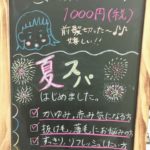 1000円(税)
前髪切った〜♪♪
嬉しい!!
夏スパ
はじめました。
かゆみ、赤み気になる方
抜け毛、薄毛にお悩みの方
すっきり、リフレッシュしたい方